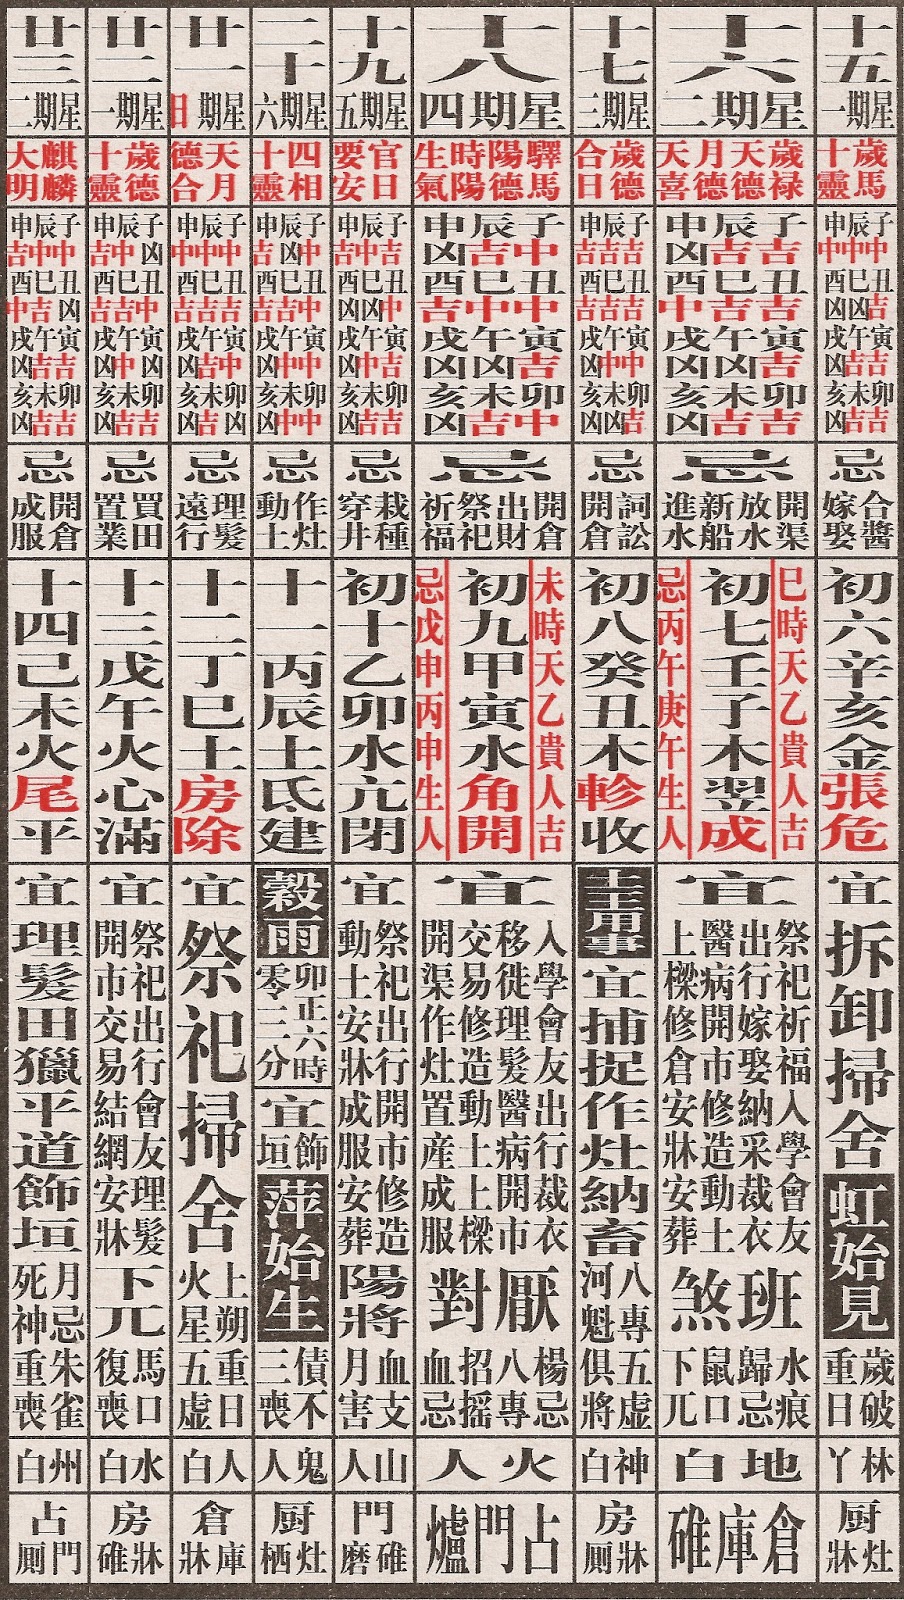 十五
星期一
歲馬
十靈
子辰申
中中中
丑巳酉
吉凶凶
寅午戌
吉吉凶
卯未亥
吉吉凶
忌
合醬
嫁娶
初六辛亥金張危
宜
拆卸掃舍
虹始見
歲破
重日
林丫
厨
灶牀
十六
星期二
歲祿
天德
月德
天喜
子辰申
吉吉凶
丑巳酉
吉吉中
寅午戌
吉凶凶
卯未亥
吉吉凶
忌
開渠
放水
新船
進水
巳時天乙貴人吉
初七壬子木翌成
忌丙午庚午生人
宜
祭祀祈福入學會友
出行嫁娶納采裁衣
醫病開市修造動土
上樑修倉安牀安葬
班煞
水痕
歸忌
鼠口
下兀
地白
倉庫碓
十七
星期三
歲德
合日
子辰申
吉吉吉
丑巳酉
吉吉吉
寅午戌
中中凶
卯未亥
吉凶凶
忌
詞訟
開倉
初八癸丑木軫收
土王用事
宜捕捉作灶納畜
八專五虛
河魁俱將
神白
房
牀厠
十八
星期四
驛馬
陽德
時陽
生氣
子辰申
中吉凶
丑巳酉
中中吉
寅午戌
吉凶凶
卯未亥
中吉凶
忌
開倉
出財
祭祀
祈福
未時天乙貴人吉
初九甲寅水角開
忌戊申丙申生人
宜
入學會友出行裁衣
移徙理髮醫病開市
交易修造動土上樑
開渠作灶置產成服
厭對
楊忌
八專
招搖
血忌
火人
占門爐
十九
星期五
官日
要安
子辰申
吉中吉
丑巳酉
中凶凶
寅午戌
吉中凶
卯未亥
吉吉凶
忌
栽種
穿井
初十乙卯水亢閉
宜
祭祀出行開市修造
動土安牀成服安葬
陽將
血支
月害
山人
門
碓磨
二十
星期六
四相
十靈
子辰申
中凶吉
丑巳酉
中吉吉
寅午戌
中中凶
卯未亥
中中凶
忌
作灶
動土
十一丙辰土氐建
穀雨
卯正六時
零三分
宜
飾垣
萍始生
債不
三喪
鬼人
厨
灶栖
廿一
星期日
天月
德合
子辰申
中中中
丑巳酉
吉吉吉
寅午戌
中吉凶
卯未亥
凶吉凶
忌
理髮
遠行
十二丁巳土房除
宜
祭祀掃舍
上朔重日
火星五虛
人白
倉
庫牀
廿二
星期一
歲德
十靈
子辰申
凶中吉
丑巳酉
中吉吉
寅午戌
凶中凶
卯未亥
吉吉凶
忌
買田
置業
十三戊午火心滿
宜
祭祀出行會友理髮
開市交易結網安牀
下兀
馬口
復喪
水白
房
牀碓
廿三
星期二
麒麟
大明
子辰申
中中吉
丑巳酉
凶吉中
寅午戌
吉吉凶
卯未亥
吉吉凶
忌
開倉
成服
十四己未火尾平
宜
理髮田獵平道飾垣
月忌朱雀
死神重喪
州白
占
門厠